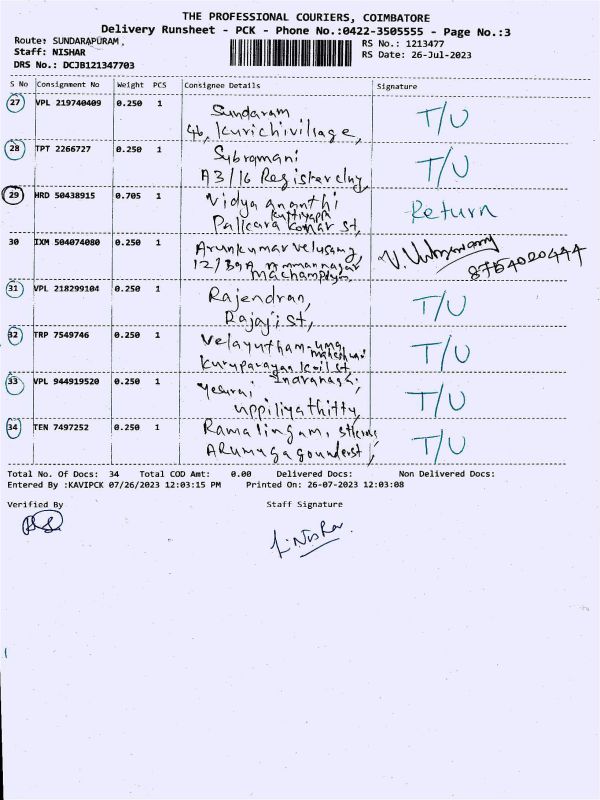 THE PROFESSIONAL COURIERS, COIMBATORE
Delivery Runsheet - PCK - Phone No.:0422-3505555 - Page No.:3
Route: SUNDARAPURAM,
RS No.: 1213477
Staff: NISHAR
RS Date: 26-Jul-2023
DRS No.: DCJB121347703
S No Consignment No Weight PCS Consignee Details Signature
27 VPL 219740409 0.250 1 Sundaram T/U
46, Kurichivillage,
28 TPT 2266727 0.250 1 Subramani T/U
A3/16 Register
29 HRD 50438915 0.705 1 Vidya ananthi Return
Kuttiyappa
Pallcara Konar st,
30 IXM 504074080 0.250 1 Arunkumar Velusamy, V.
12/39A
8754020444
31 VPL 218299104 0.250 1 Rajendran, T/U
Rajaji st,
32 TRP 7549746 0.250 1 Velayutham-uma T/U
maheshwari
st
33 VPL 944919520 0.250 1 Yesurai Indranagar, T/U
uppiliyathitty,
34 TEN 7497252 0.250 1 Ramalingam, T/U
Arumugagounderst,
Total No. Of Docs: 34 Total COD Amt: 0.00 Delivered Docs: Non Delivered Docs:
Entered By :KAVIPCK 07/26/2023 12:03:15 PM Printed On: 26-07-2023 12:03:08
Verified By Staff Signature